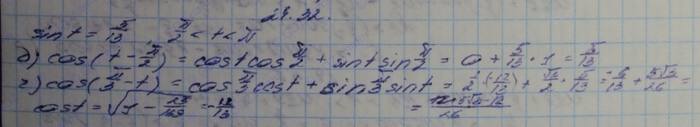 24.32.
sin t = 5/13 π/2 < t < π
б) cos(t - π/2) = cost cos π/2 + sint sin π/2 = 0 + 5/13 · 1 = 5/13
г) cos(π/3 - t) = cos π/3 cost + sin π/3 sint = 1/2 · (-12/13) + √3/2 · 5/13 = -6/13 + 5√3/26 =
cost = √1 - 25/169 = -12/13 = 5√3-12/26